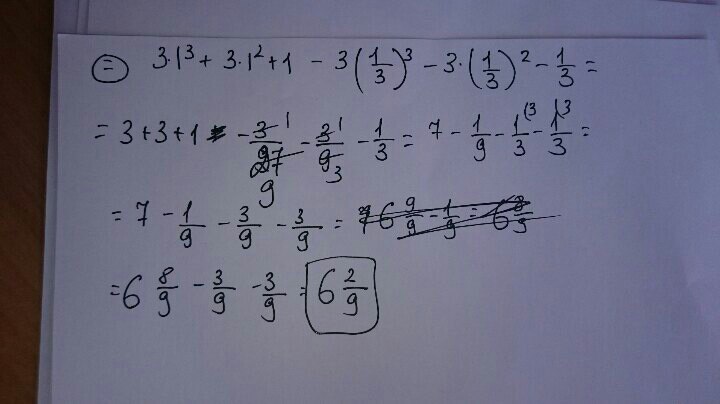 = 3·1³ + 3·1² + 1 - 3(1/3)³ - 3·(1/3)² - 1/3 =
= 3 + 3 + 1 - 3/27 - 3/9 - 1/3 = 7 - 1/9 - 1/3 - 1/3 =
= 7 - 1/9 - 3/9 - 3/9 =
= 6 8/9 - 3/9 - 3/9 = 6 2/9